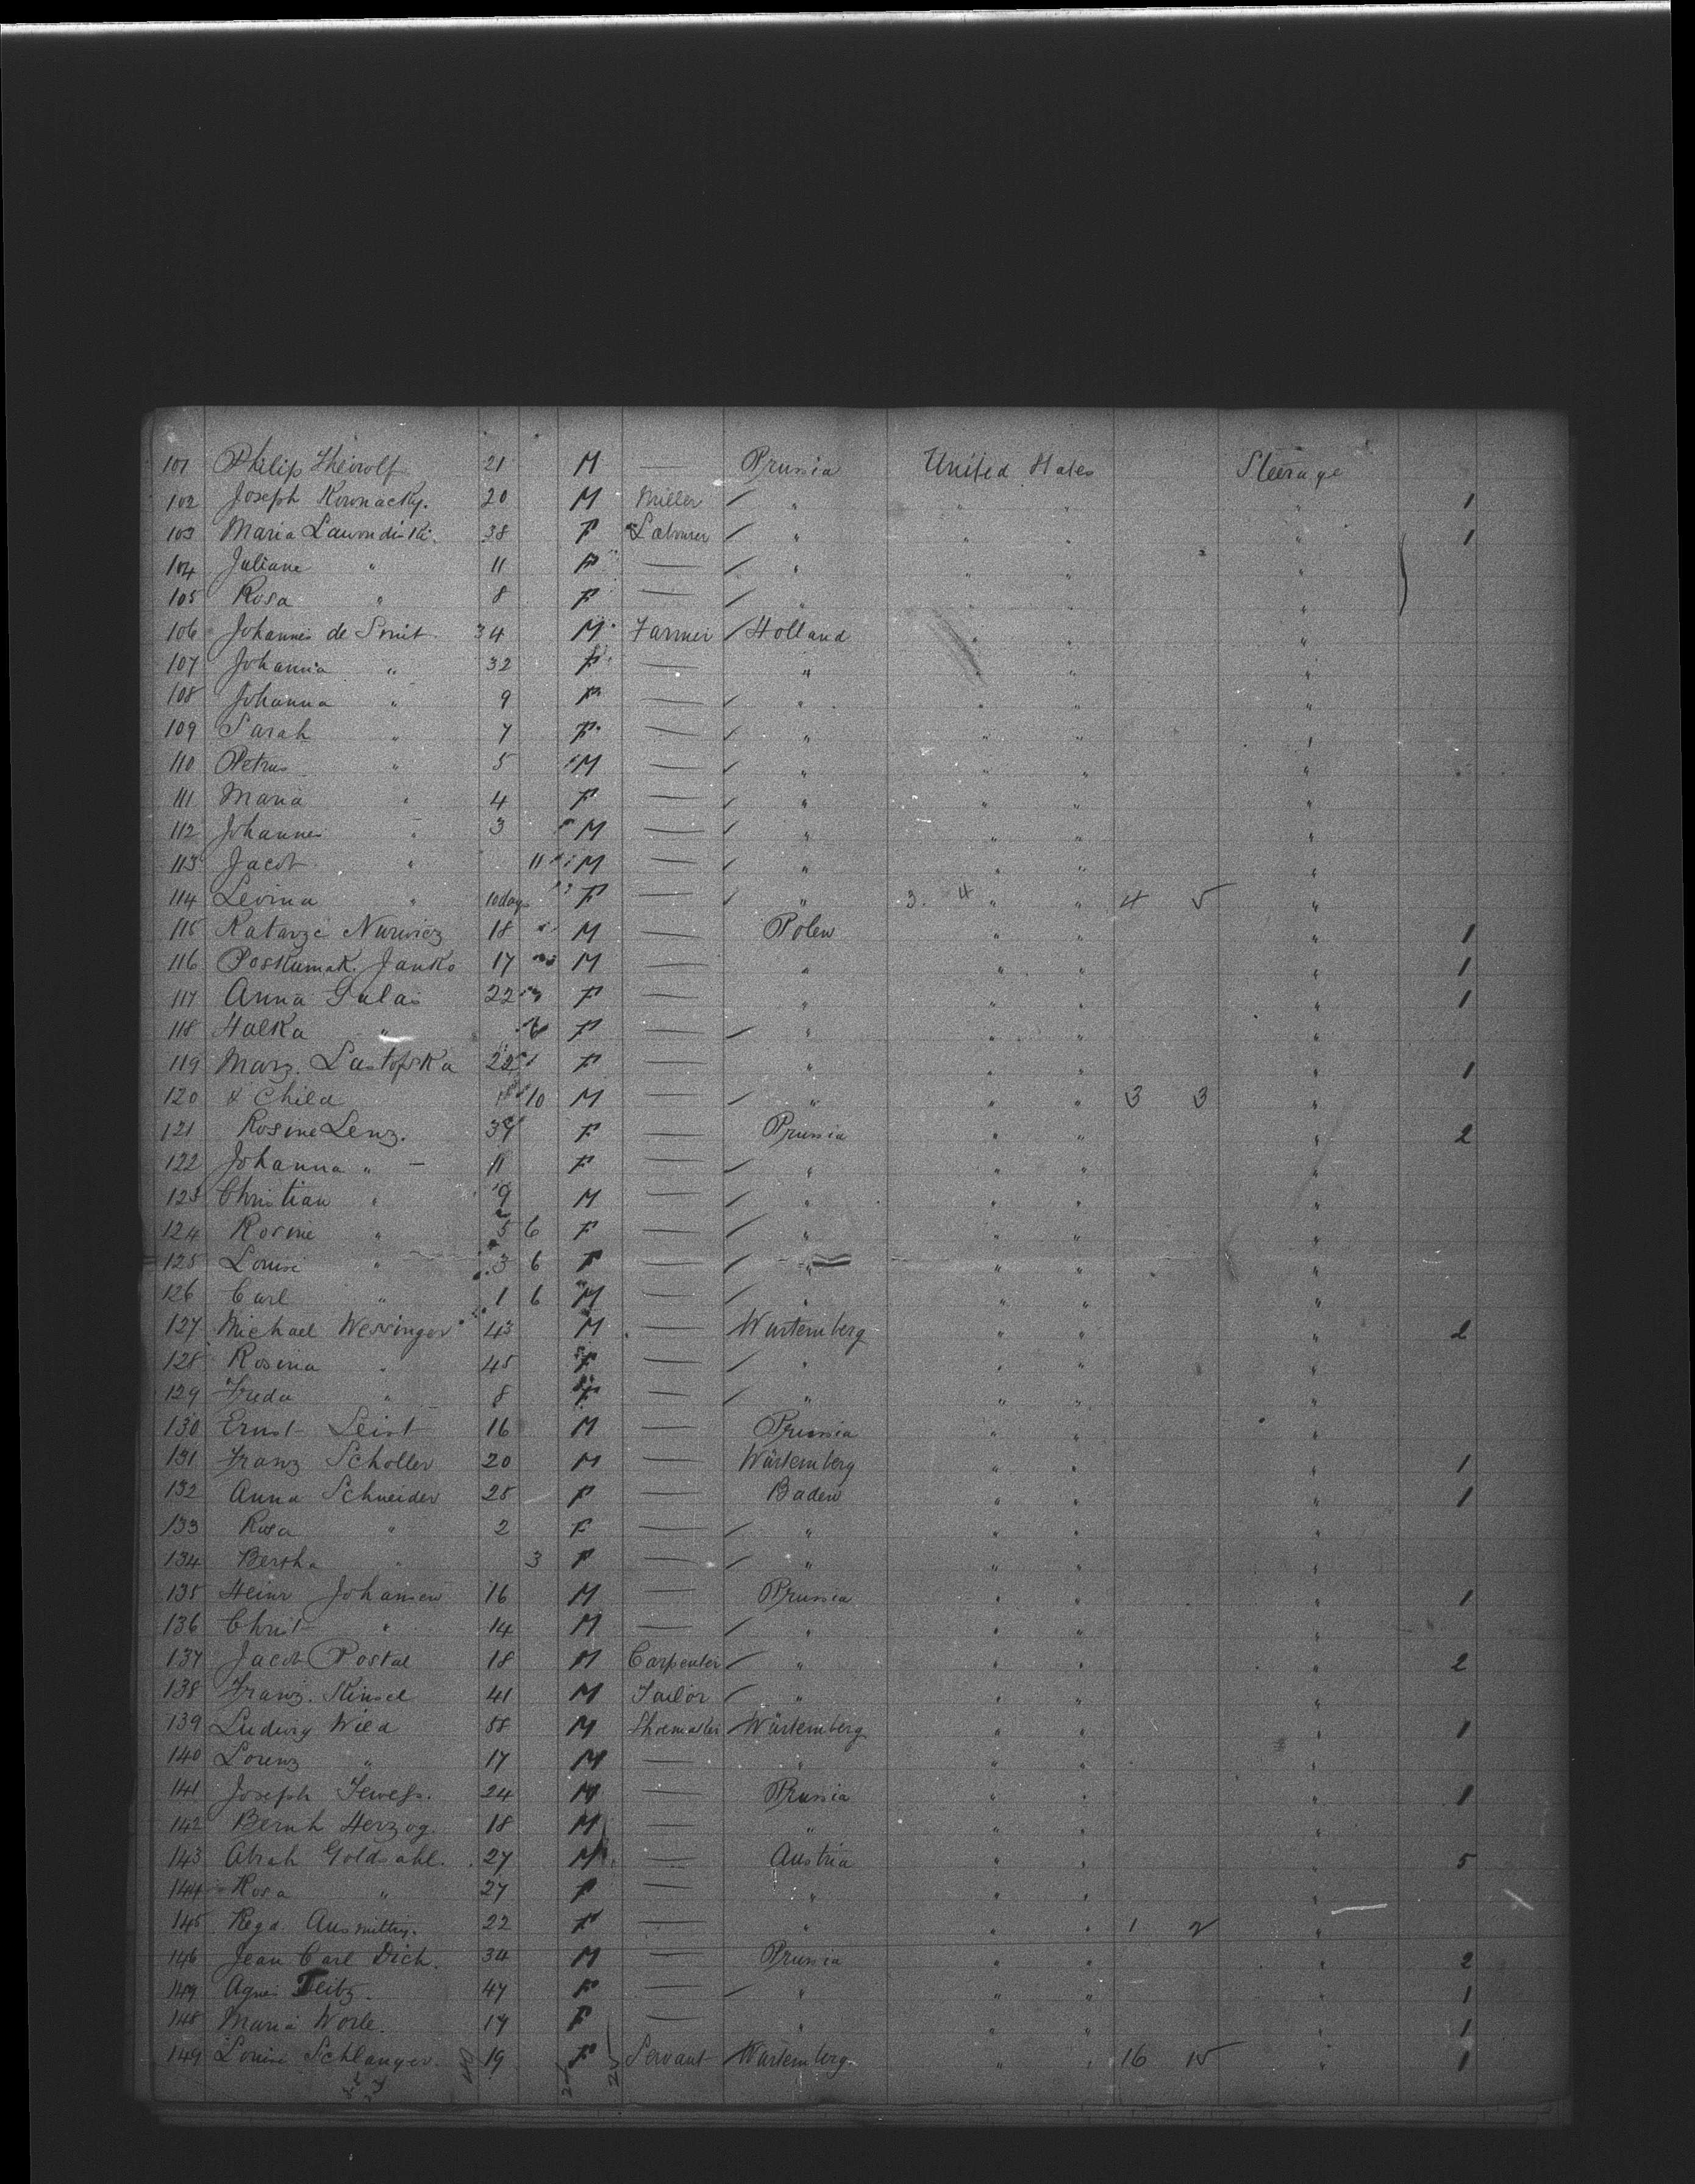 101 Philip Theirolf 21 M — Prussia United States Steerage
102 Joseph Kownacky. 20 M Miller " " " " 1
103 Maria Lawondiski. 38 F Labourer " " " " 1
104 Juliane " 11 F — " " " "
105 Rosa " 8 F — " " " "
106 Johannis de Smit 34 M Farmer Holland " " "
107 Johanna " 32 F — " " "
108 Johanna " 9 F — " " " "
109 Sarah " 7 F — " " " "
110 Petrus " 5 M — " " " "
111 Maria " 4 F — " " " "
112 Johannes " 3 M — " " " "
113 Jacob " 11 M — " " " "
114 Levina " 10 days F — " 3. 4 " " 4 5 "
115 Katarze Nurwicz 18 M — Polen " " " 1
116 Poskumak. Janko 17 M — " " " " 1
117 Anna Gulas 22 F — " " " " 1
118 Halka " 6 F — " " " "
119 Marz. Lastofska 22 F — " " " " 1
120 & Child 1 10 M — " " " 3 3 "
121 Rosine Lenz. 37 F — Prussia " " " 2
122 Johanna " — 11 F — " " " "
123 Christian " 9 M — " " " "
124 Rosine " 5 6 F — " " " "
125 Louise " 3 6 F — " " " "
126 Carl " 1 6 M — " " " "
127 Michael Wessinger 43 M — Wurtemberg " " " 2
128 Rosina " 45 F — " " " "
129 Freda " 8 F — " " " "
130 Ernst Leist 16 M — Prussia " " "
131 Franz Scholler 20 M — Würtemberg " " " 1
132 Anna Schneider 25 F — Baden " " " 1
133 Rosa " 2 F — " " " "
134 Bertha " 3 F — " " " "
135 Heinr Johansen 16 M — Prussia " " " 1
136 Christ " 14 M — " " " "
137 Jacob Postal 18 M Carpenter " " " " 2
138 Franz. Kinsel 41 M Tailor " " " "
139 Ludwig Wild 58 M Shoemaker Würtemberg " " " 1
140 Lorenz " 17 M — " " " "
141 Joseph Tewes. 24 M — Prussia " " " 1
142 Bernh Herzog. 18 M — " " " "
143 Abrah Goldsahl. 27 M — Austria " " " 5
144 Rosa " 27 F — " " " "
145 Regd. Ausmitting. 22 F — " " " 1 2 "
146 Jean Carl Dick. 34 M — Prussia " " " 2
149 Agnes Teitz. 47 F — " " " " 1
148 Maria Worle. 17 F — " " " " 1
149 Louise Schlanger. 19 F Servant Würtemberg " " 16 15 " 1